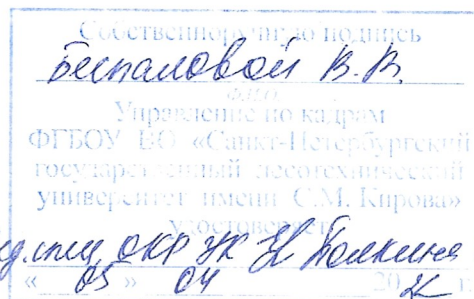 Собственноручную подпись
Беспаловой В.В.
Ф.И.О
Управление по кадрам
ФГБОУ ВО «Санкт-Петербургский
государственный лесотехнический
университет имени С.М. Кирова»
удостоверяет
ОКР УК
« 03 » 04 20 г